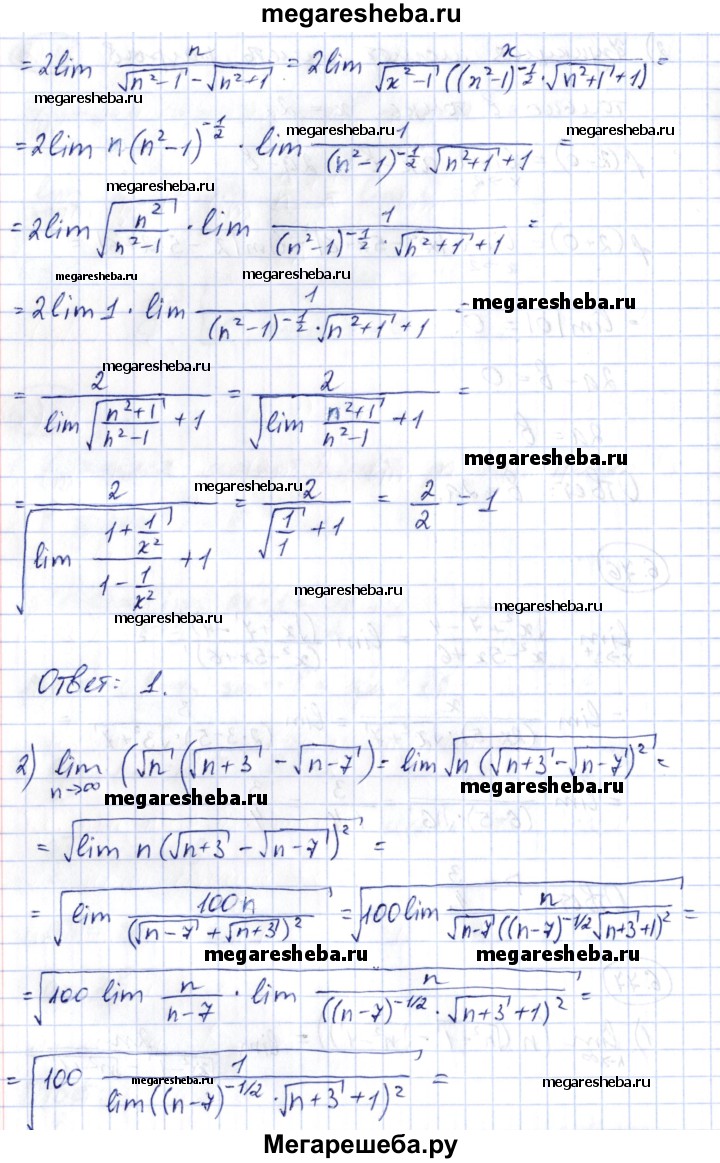 megaresheba.ru
= 2lim n / (√(n²-1) - √(n²+1)) = 2lim x / (√(x²-1) ((x²-1)^(-1/2) · √(n²+1) + 1) =
megaresheba.ru megaresheba.ru
= 2lim n(n²-1)^(-1/2) · lim 1 / ((n²-1)^(-1/2) √(n²+1) + 1) =
megaresheba.ru megaresheba.ru
megaresheba.ru
= 2lim √(n² / (n²-1)) · lim 1 / ((n²-1)^(-1/2) · √(n²+1) + 1) =
megaresheba.ru megaresheba.ru
= 2lim 1 · lim 1 / ((n²-1)^(-1/2) · √(n²+1) + 1) =
megaresheba.ru
megaresheba.ru
= 2 / (lim √((n²+1) / (n²-1)) + 1) = 2 / (√(lim (n²+1) / (n²-1)) + 1) =
megaresheba.ru
= 2 / √(lim (1 + 1/x²) / (1 - 1/x²) + 1) = 2 / (√(1/1) + 1) = 2/2 = 1
megaresheba.ru
megaresheba.ru
megaresheba.ru
Ответ: 1.
2) lim n→∞ (√n (√(n+3) - √(n-7)) = lim √(n (√(n+3) - √(n-7))²) =
megaresheba.ru megaresheba.ru
= √(lim n (√(n+3) - √(n-7))²) =
= √(lim 100n / (√(n-7) + √(n+3))²) = √(100 lim n / (√(n-7) ((n-7)^(-1/2) √(n+3) + 1)²) =
megaresheba.ru megaresheba.ru
= √(100 lim n / (n-7) · lim n / ((n-7)^(-1/2) · √(n+3) + 1)²) =
= √(100 1 / lim((n-7)^(-1/2) · √(n+3) + 1)²) =
megaresheba.ru megaresheba.ru
Мегарешеба.ру